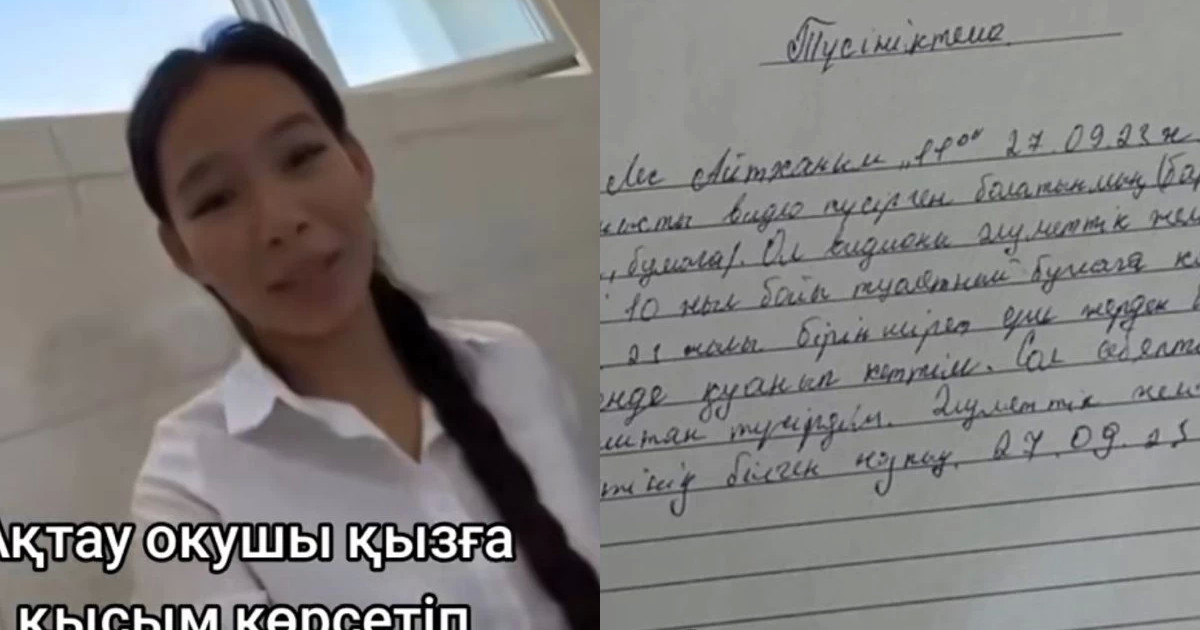 Ақтау оқушы қызға
қысым көрсетіп
Түсініктеме
Мен Айтжаным „11⁰“ 27.09.23 ж
видео түсірген болатынмың (бар
, бумага). Ол видиони әлуметтік жел
10 жыл бойы туалетный бумага к
21 жылы бірінші рет ещі жерден
қуанып кеттім. Сол себепте
түсірдім. Әлуметтік жел
білген жұқпау. 27.09.23